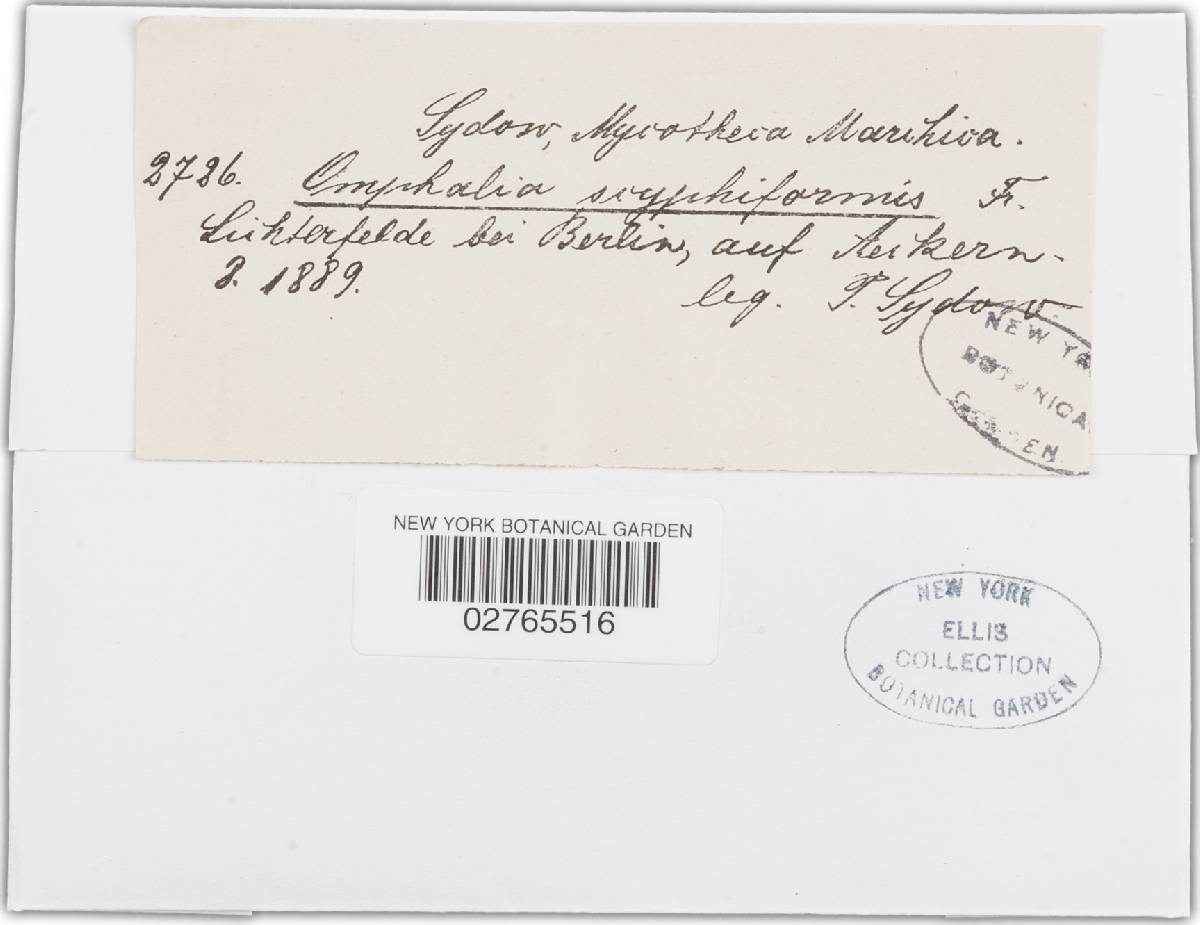 Sydow, Mycotheca Marchica.
2726. Omphalia scyphiformis Fr.
Lichterfelde bei Berlin, auf Aeckern.
8. 1889. leg. P. Sydow.
NEW YORK
BOTANICAL
GARDEN
NEW YORK BOTANICAL GARDEN
02765516
NEW YORK
ELLIS
COLLECTION
BOTANICAL GARDEN